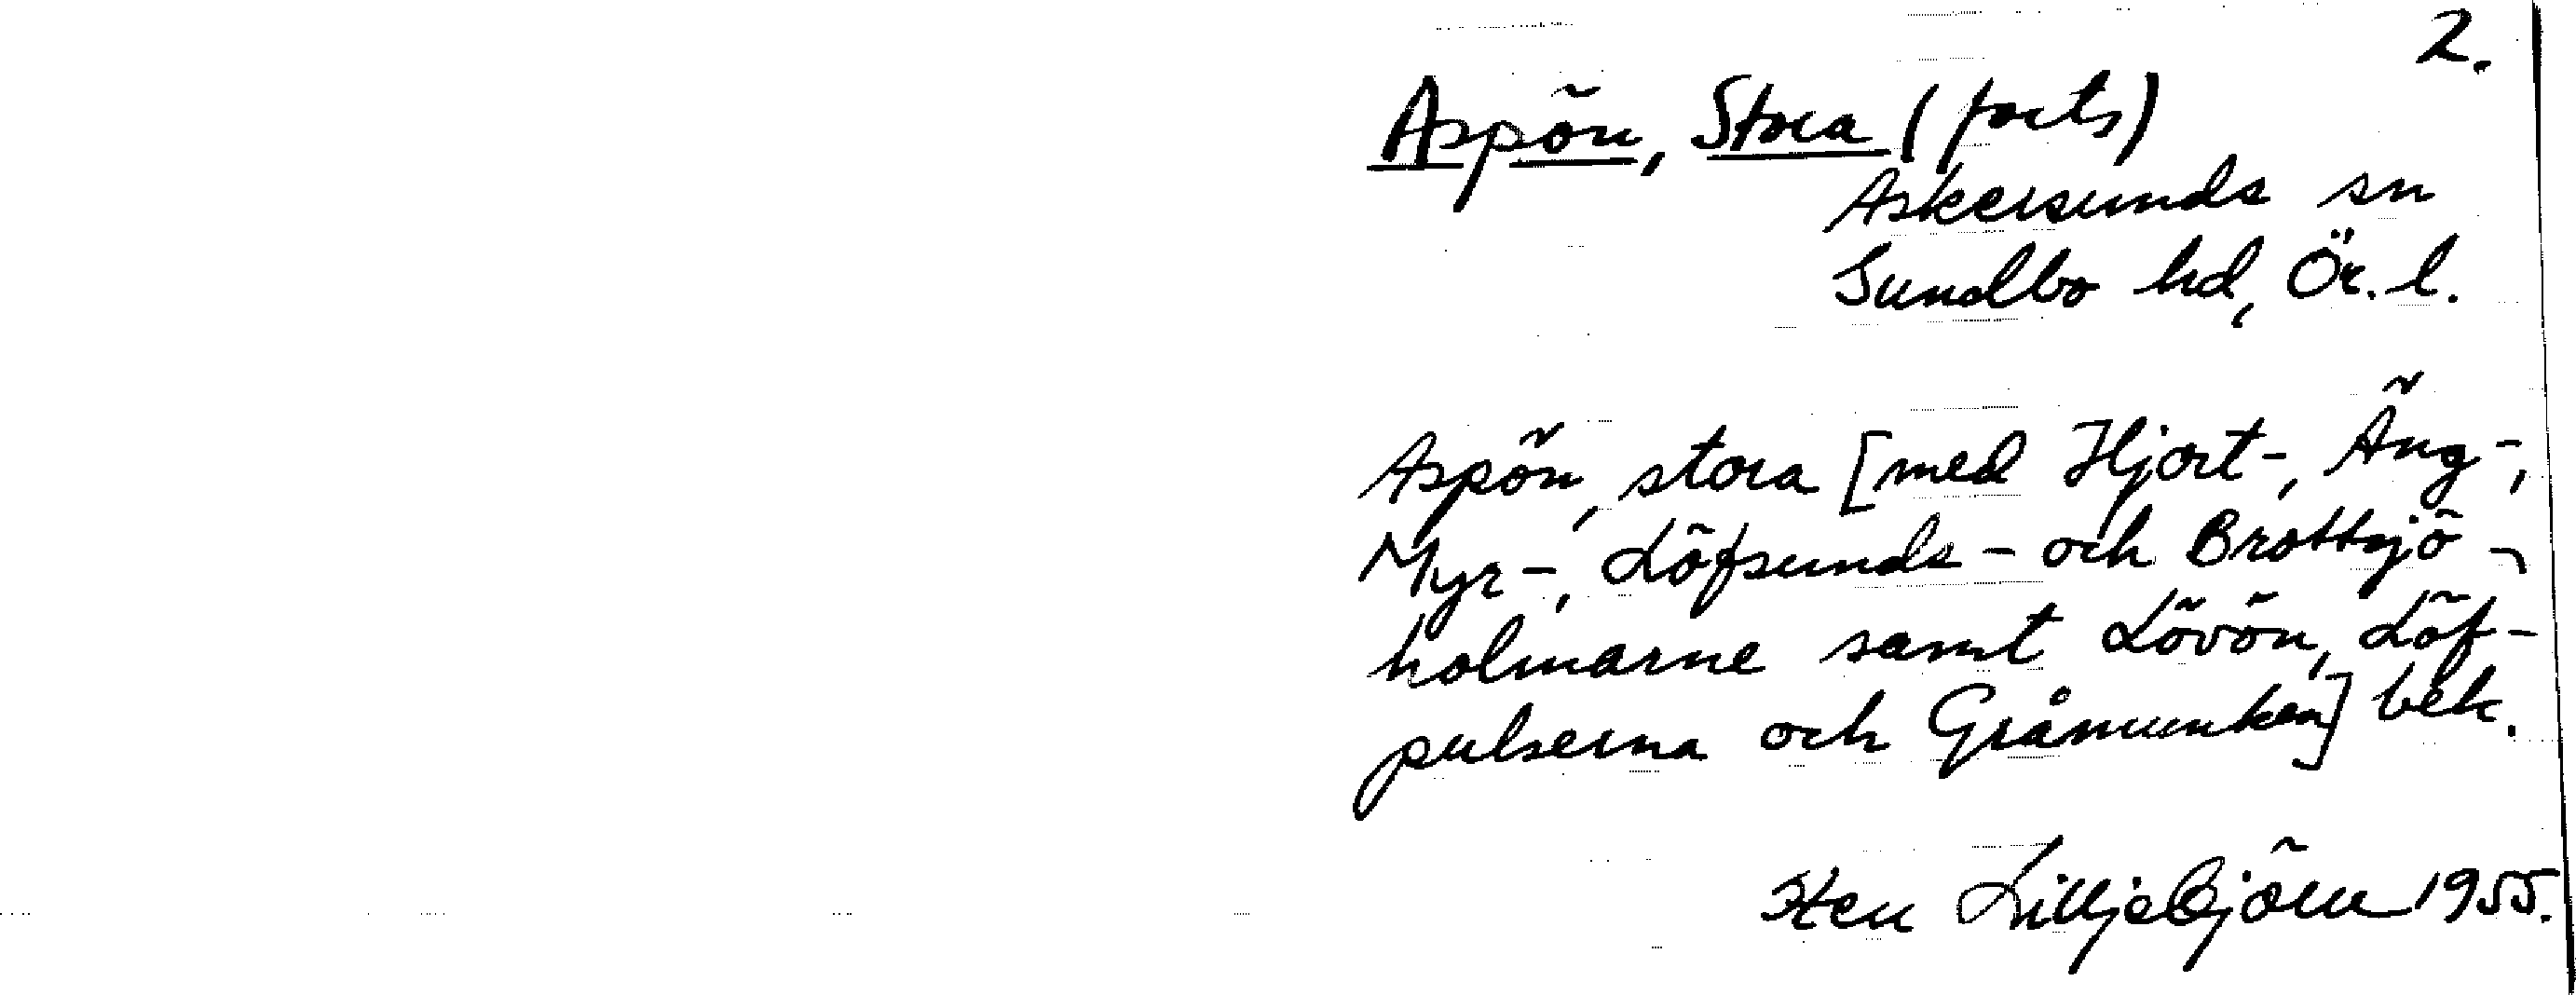 2.
Aspön, Stora (forts)
Askersunds sn
Sundbo hd, Ör. l.
Aspön, stora [med Hjort-, Äng-,
Myr-, Löfsunds- och Brottsjö-,
holmarne samt Lövön, Löf-
pulserna och Gråmunken] bek.
Sten Lilljebjörn 1955.